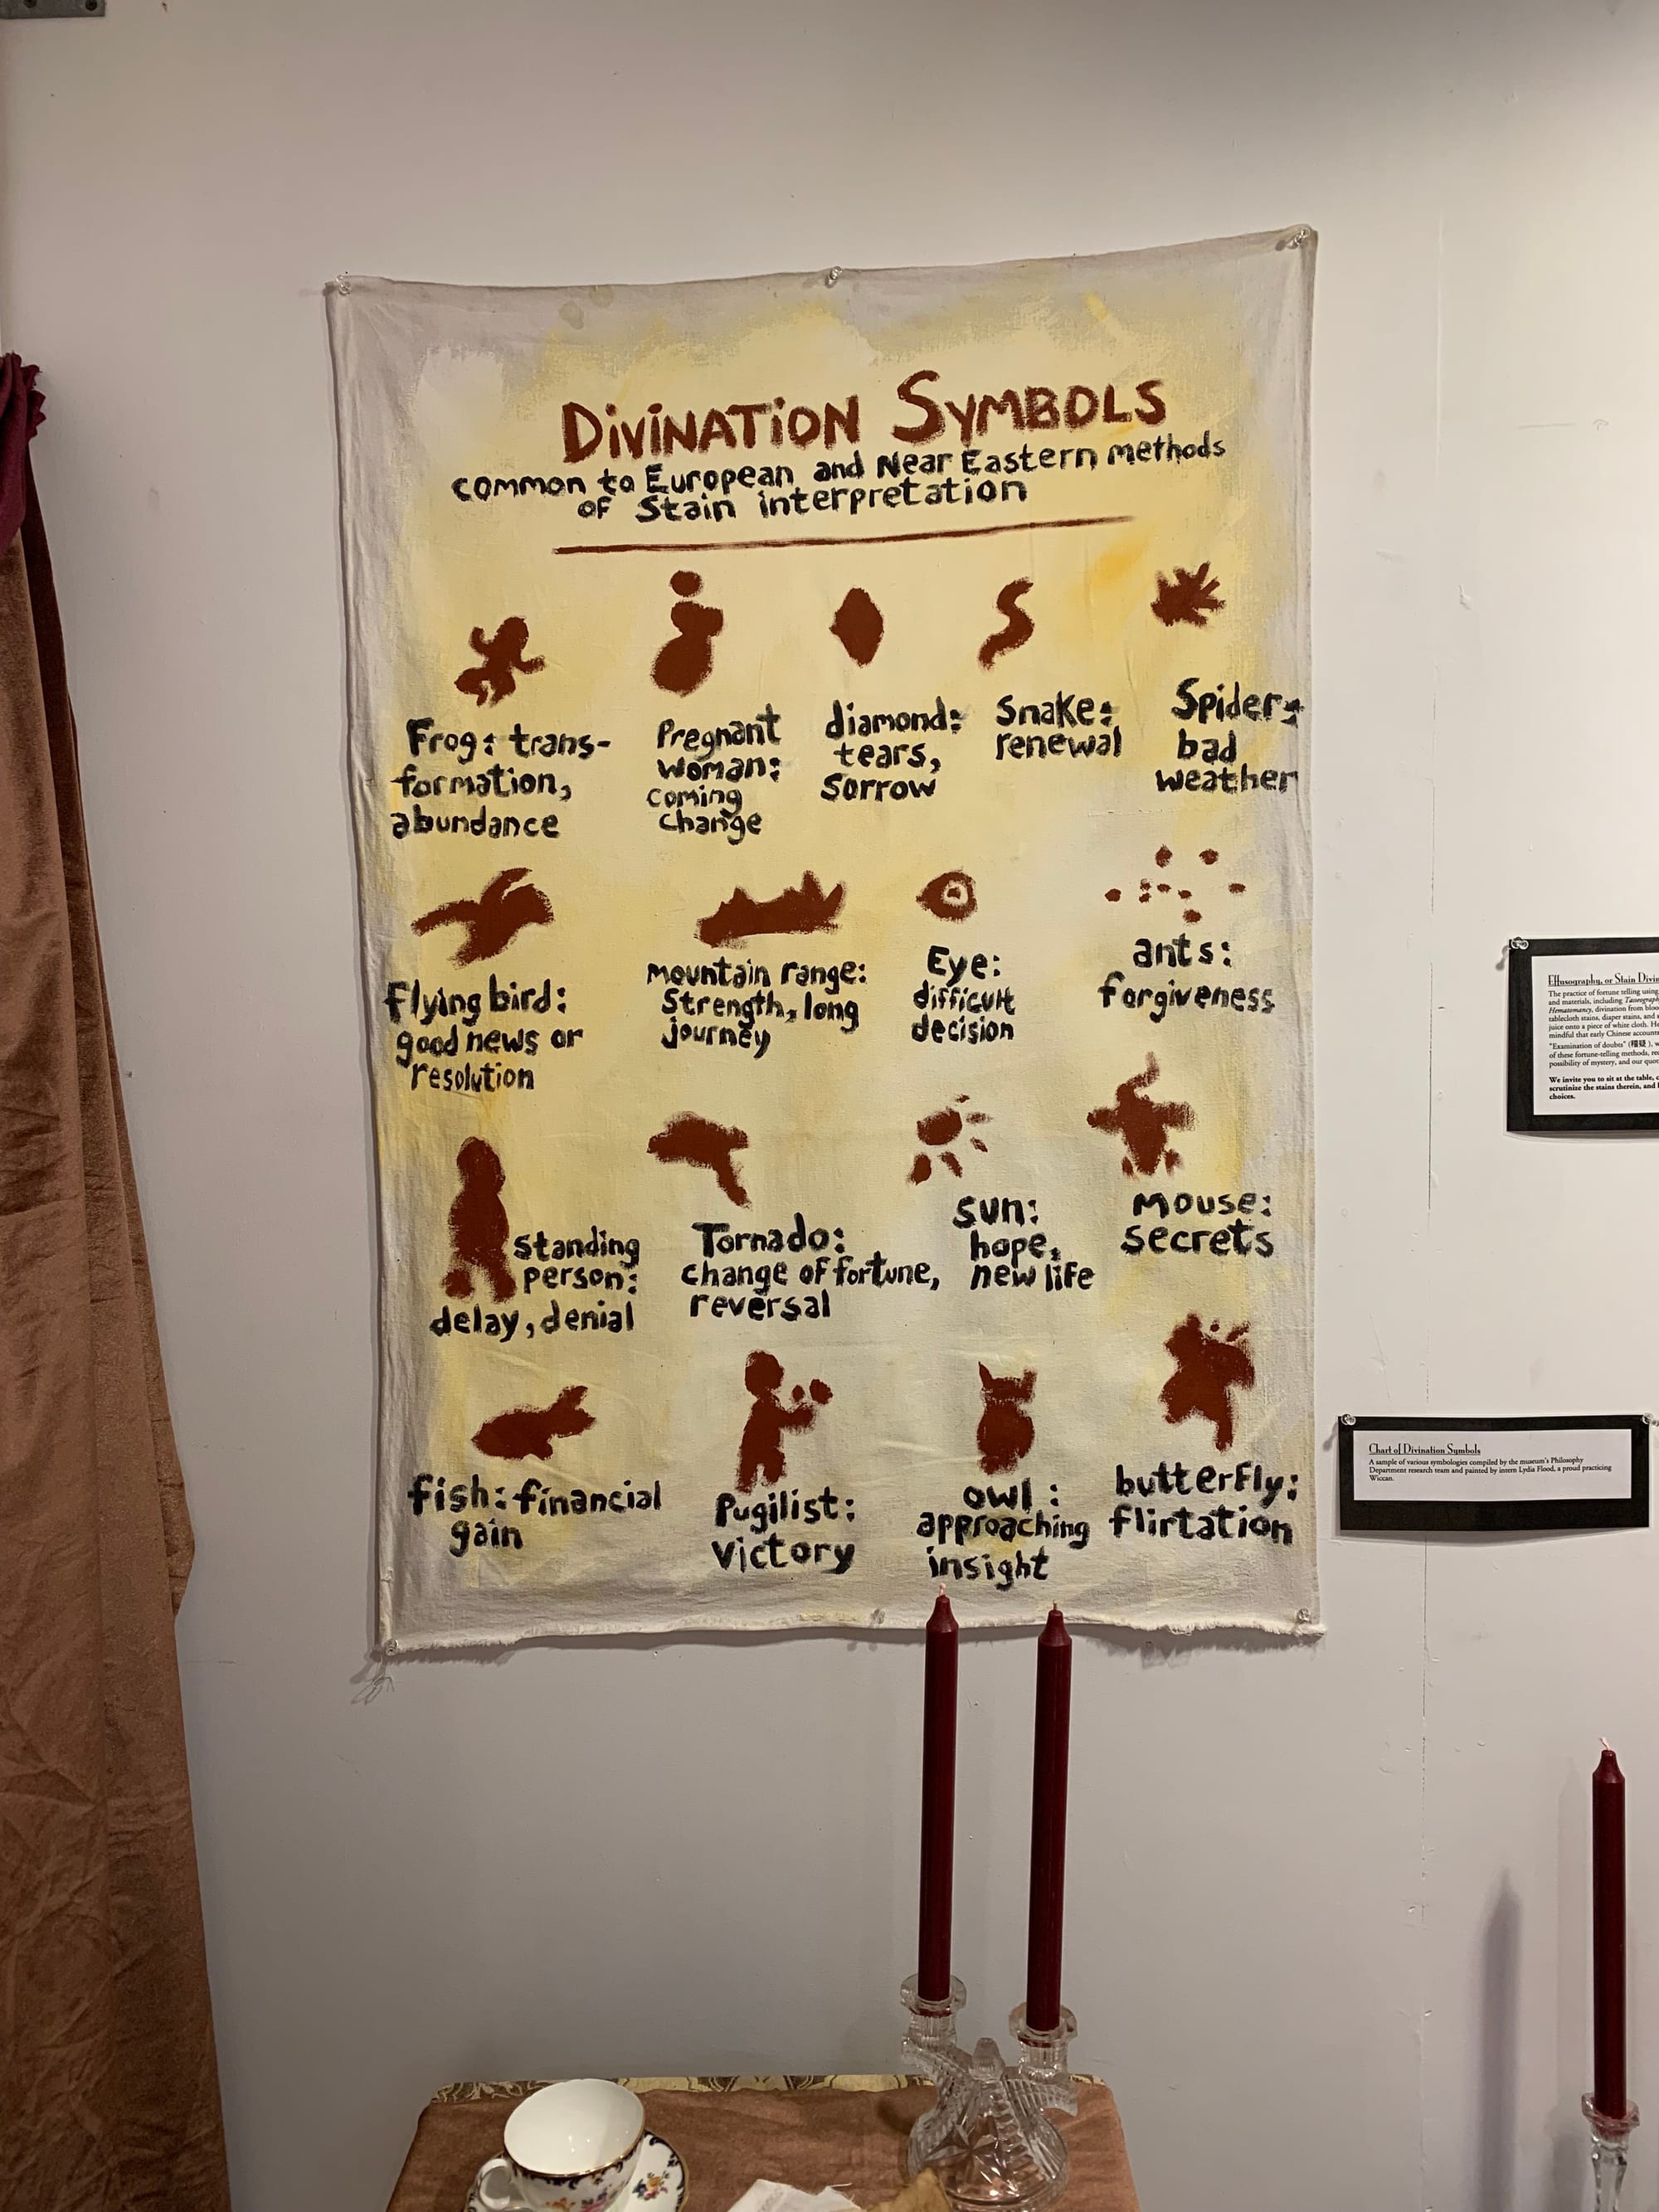 DiViNATiON SYMBOLS
common to European and Near Eastern methods
of Stain interpretation
Frog: trans-
formation,
abundance
Pregnant
woman:
coming
change
diamond:
tears,
sorrow
Snake:
renewal
Spider:
bad
weather
Flying bird:
good news or
resolution
mountain range:
Strength, long
journey
Eye:
difficult
decision
ants:
forgiveness
standing
person:
delay, denial
Tornado:
change of fortune,
reversal
sun:
hope,
new life
mouse:
secrets
fish: financial
gain
Pugilist:
victory
owl:
approaching
insight
butterfly:
flirtation
Effusography, or Stain Divin
The practice of fortune telling using
and materials, including Tasseograph
Hematomancy, divination from bloo
tablecloth stains, diaper stains, and
juice onto a piece of white cloth. He
mindful that early Chinese accounts
"Examination of doubts" (稽疑), w
of these fortune-telling methods, re
possibility of mystery, and our quo
We invite you to sit at the table,
scrutinize the stains therein, and
choices.
Chart of Divination Symbols
A sample of various symbologies compiled by the museum's Philosophy
Department research team and painted by intern Lydia Flood, a proud practicing
Wiccan.